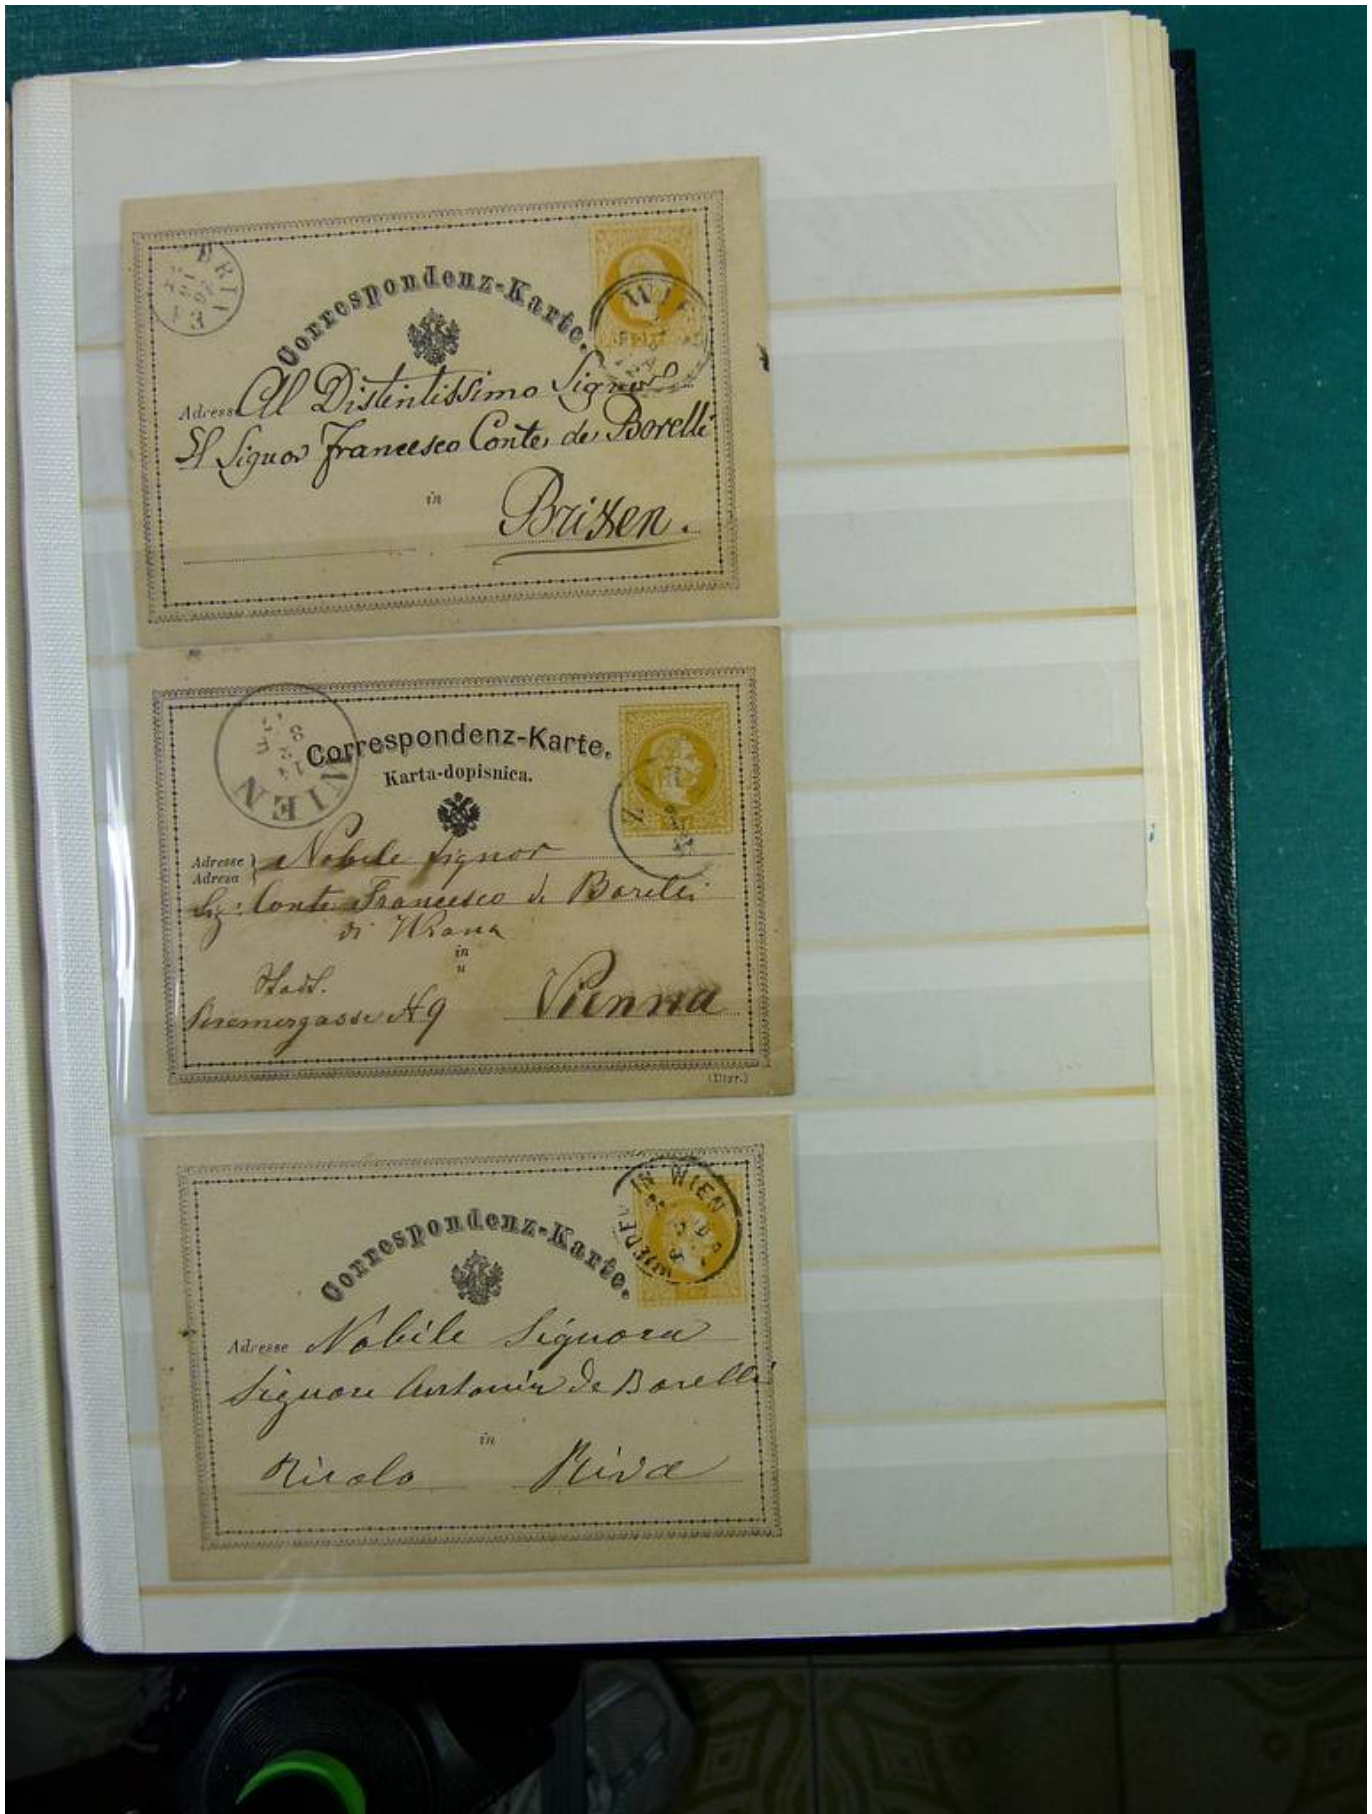 Correspondenz-Karte.
Adresse Al Distintissimo Signor
Il Signor Francesco Conte de Borelli
in Brixen.
WIEN
Correspondenz-Karte.
Karta-dopisnica.
Adresse Nobile Signor
Adresa
Sig: Conte Francesco de Borelli
di
in
u
Stadt.
No 9 Vienna
(Illyr.)
IN WIEN
Correspondenz-Karte.
Adresse Nobile Signora
Signora de Borelli
in
Riva